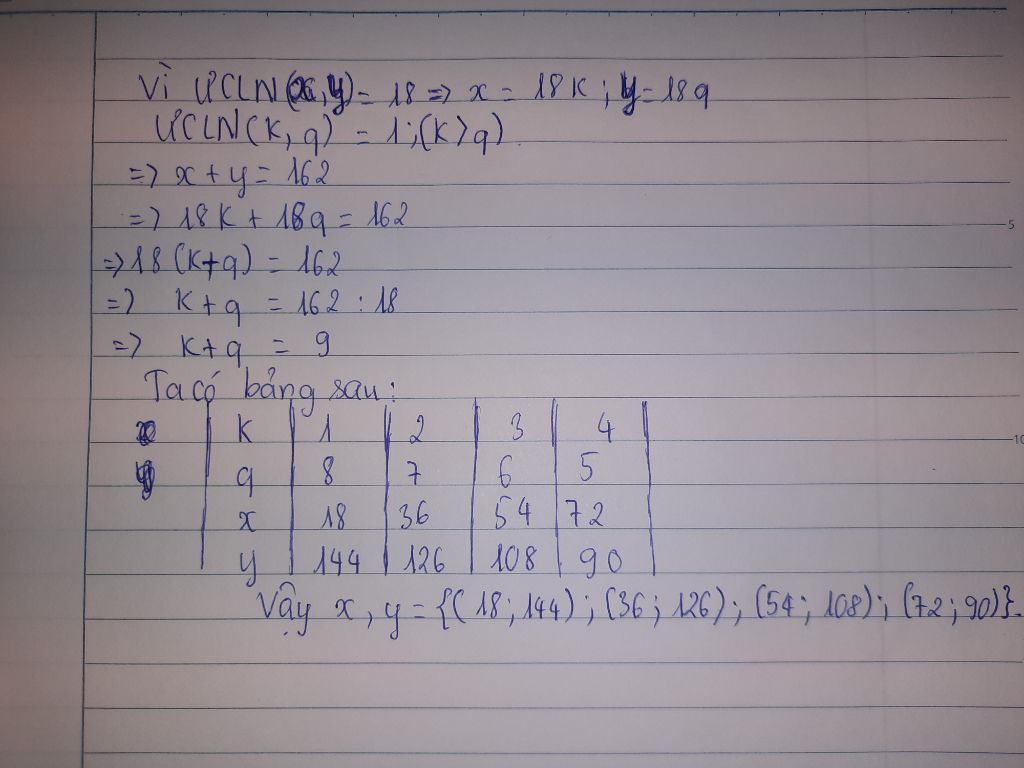 Vì ƯCLN(x,y) = 18 => x = 18K ; y = 18q
ƯCLN(K, q) = 1 ; (K > q)
=> x + y = 162
=> 18K + 18q = 162
=> 18 (K+q) = 162
=> K + q = 162 : 18
=> K+q = 9
Ta có bảng sau:
K 1 2 3 4
q 8 7 6 5
x 18 36 54 72
y 144 126 108 90
Vậy x, y = {(18; 144) ; (36; 126); (54; 108); (72; 90)}.
5
10